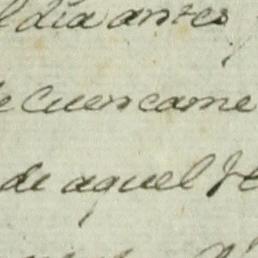 l dia antes
e Cuencame
de aquel